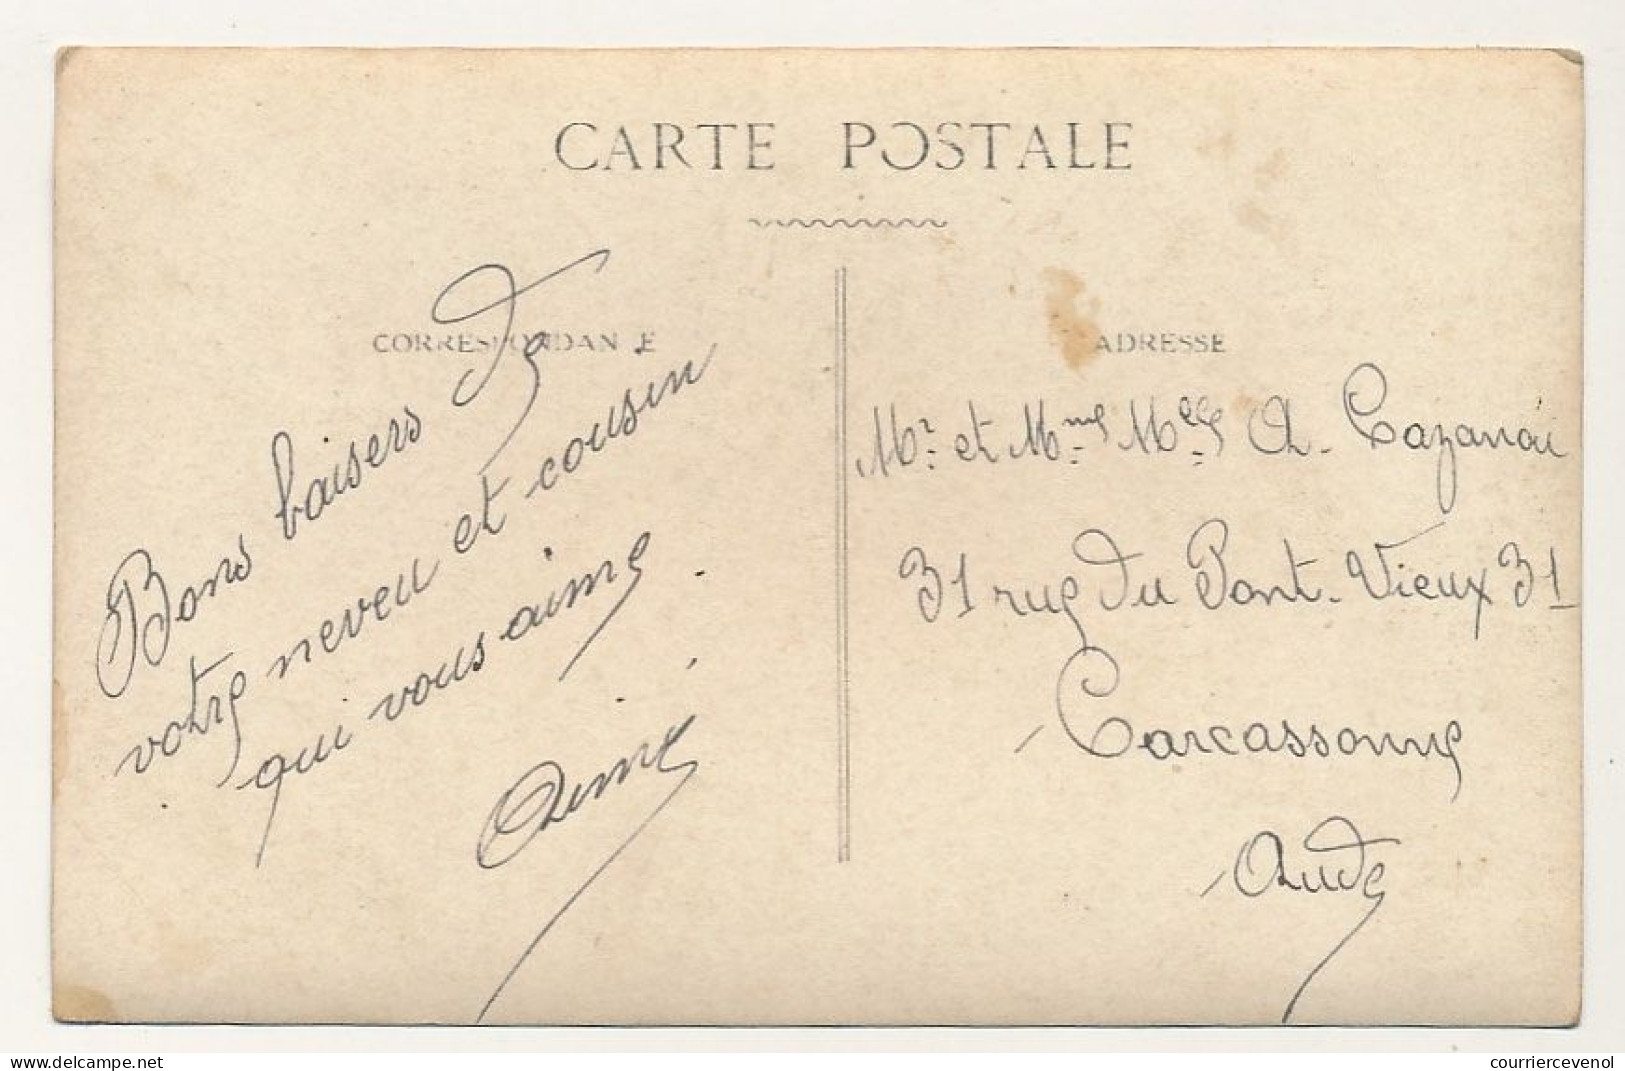 CARTE POSTALE
CORRESPONDANCE
Bons baisers de
votre neveu et cousin
qui vous aime.
Aimé
ADRESSE
Mr. et Mme. Melle A. Cazanai
31 rue du Pont-Vieux 31
Carcassonne
Aude
www.delcampe.net
courriercevenol